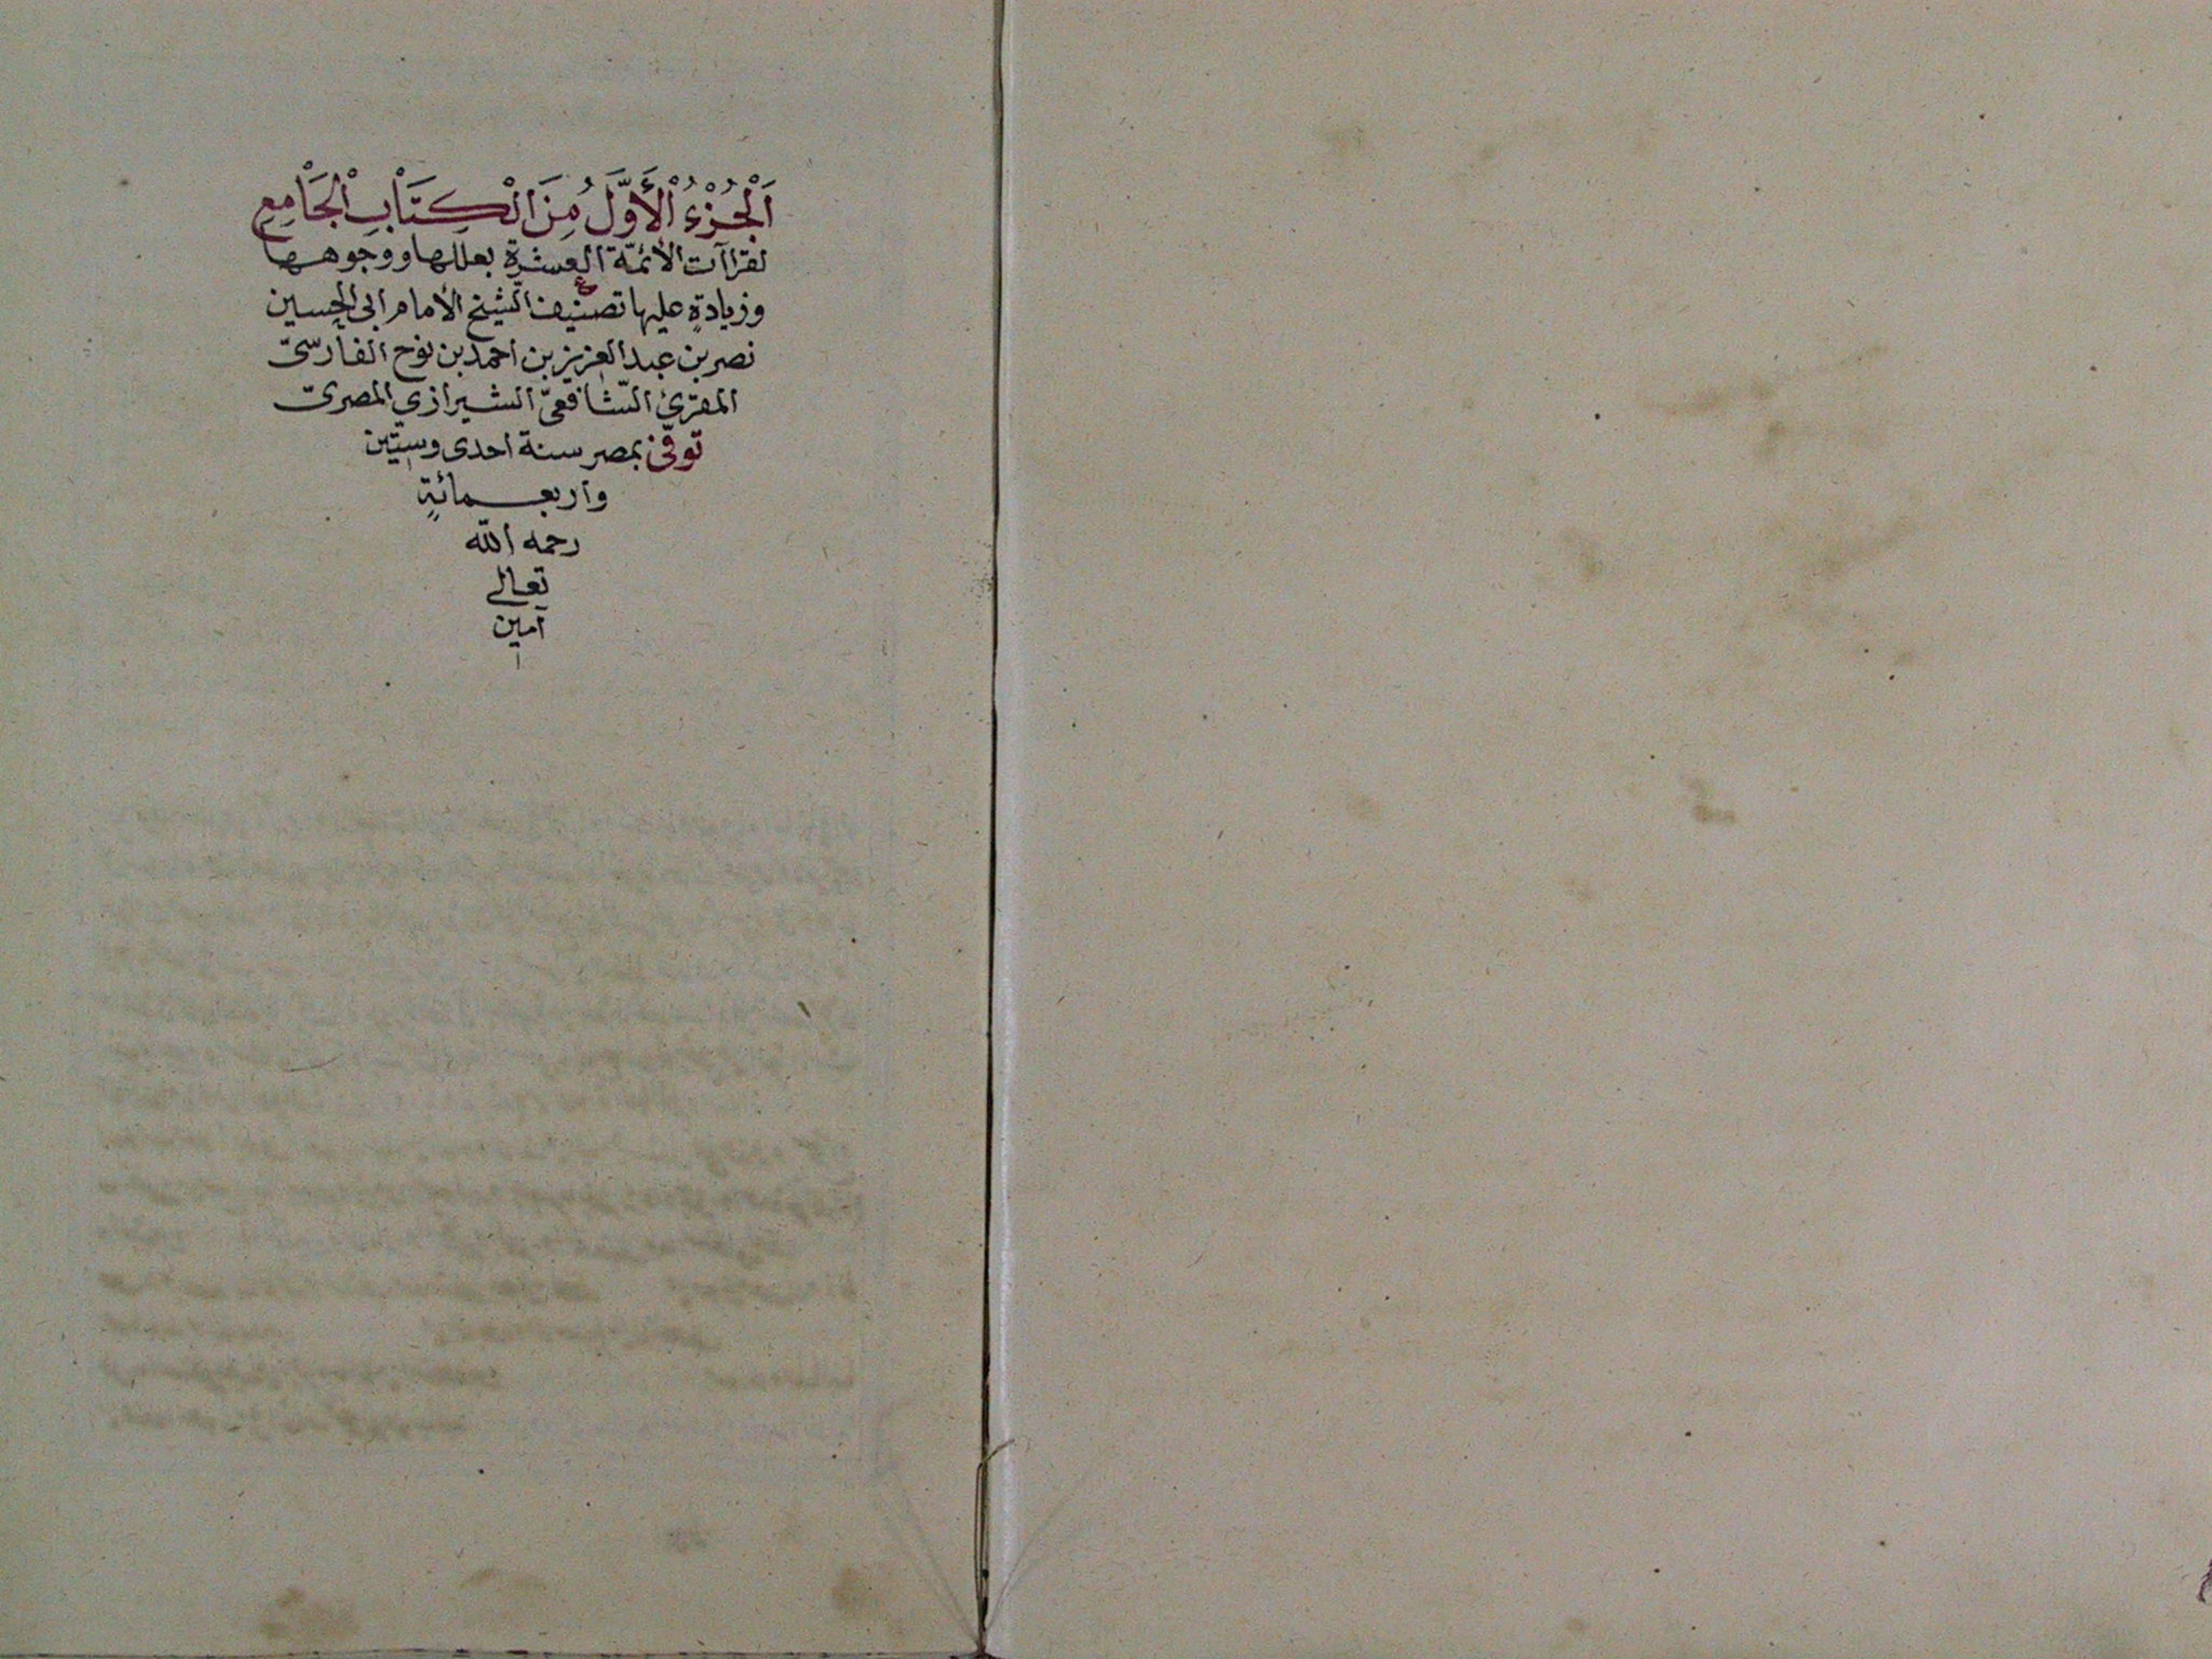 اَلْجُزْءُ الْأَوَّلُ مِنَ الْكِتَابِ الْجَامِعِ
لقراآت الأئمّة العشرة بعللها ووجوهها
وزيادةٍ عليها تصنيف الشيخ الأمام ابى الحسين
نصر بن عبد العزيز بن احمد بن نوح الفارسىّ
المقرئ الشافعىّ الشيرازي المصرىّ
توفّى بمصر سنة احدى وستّين
وأربعمائةٍ
رحمه الله
تعالى
آمين